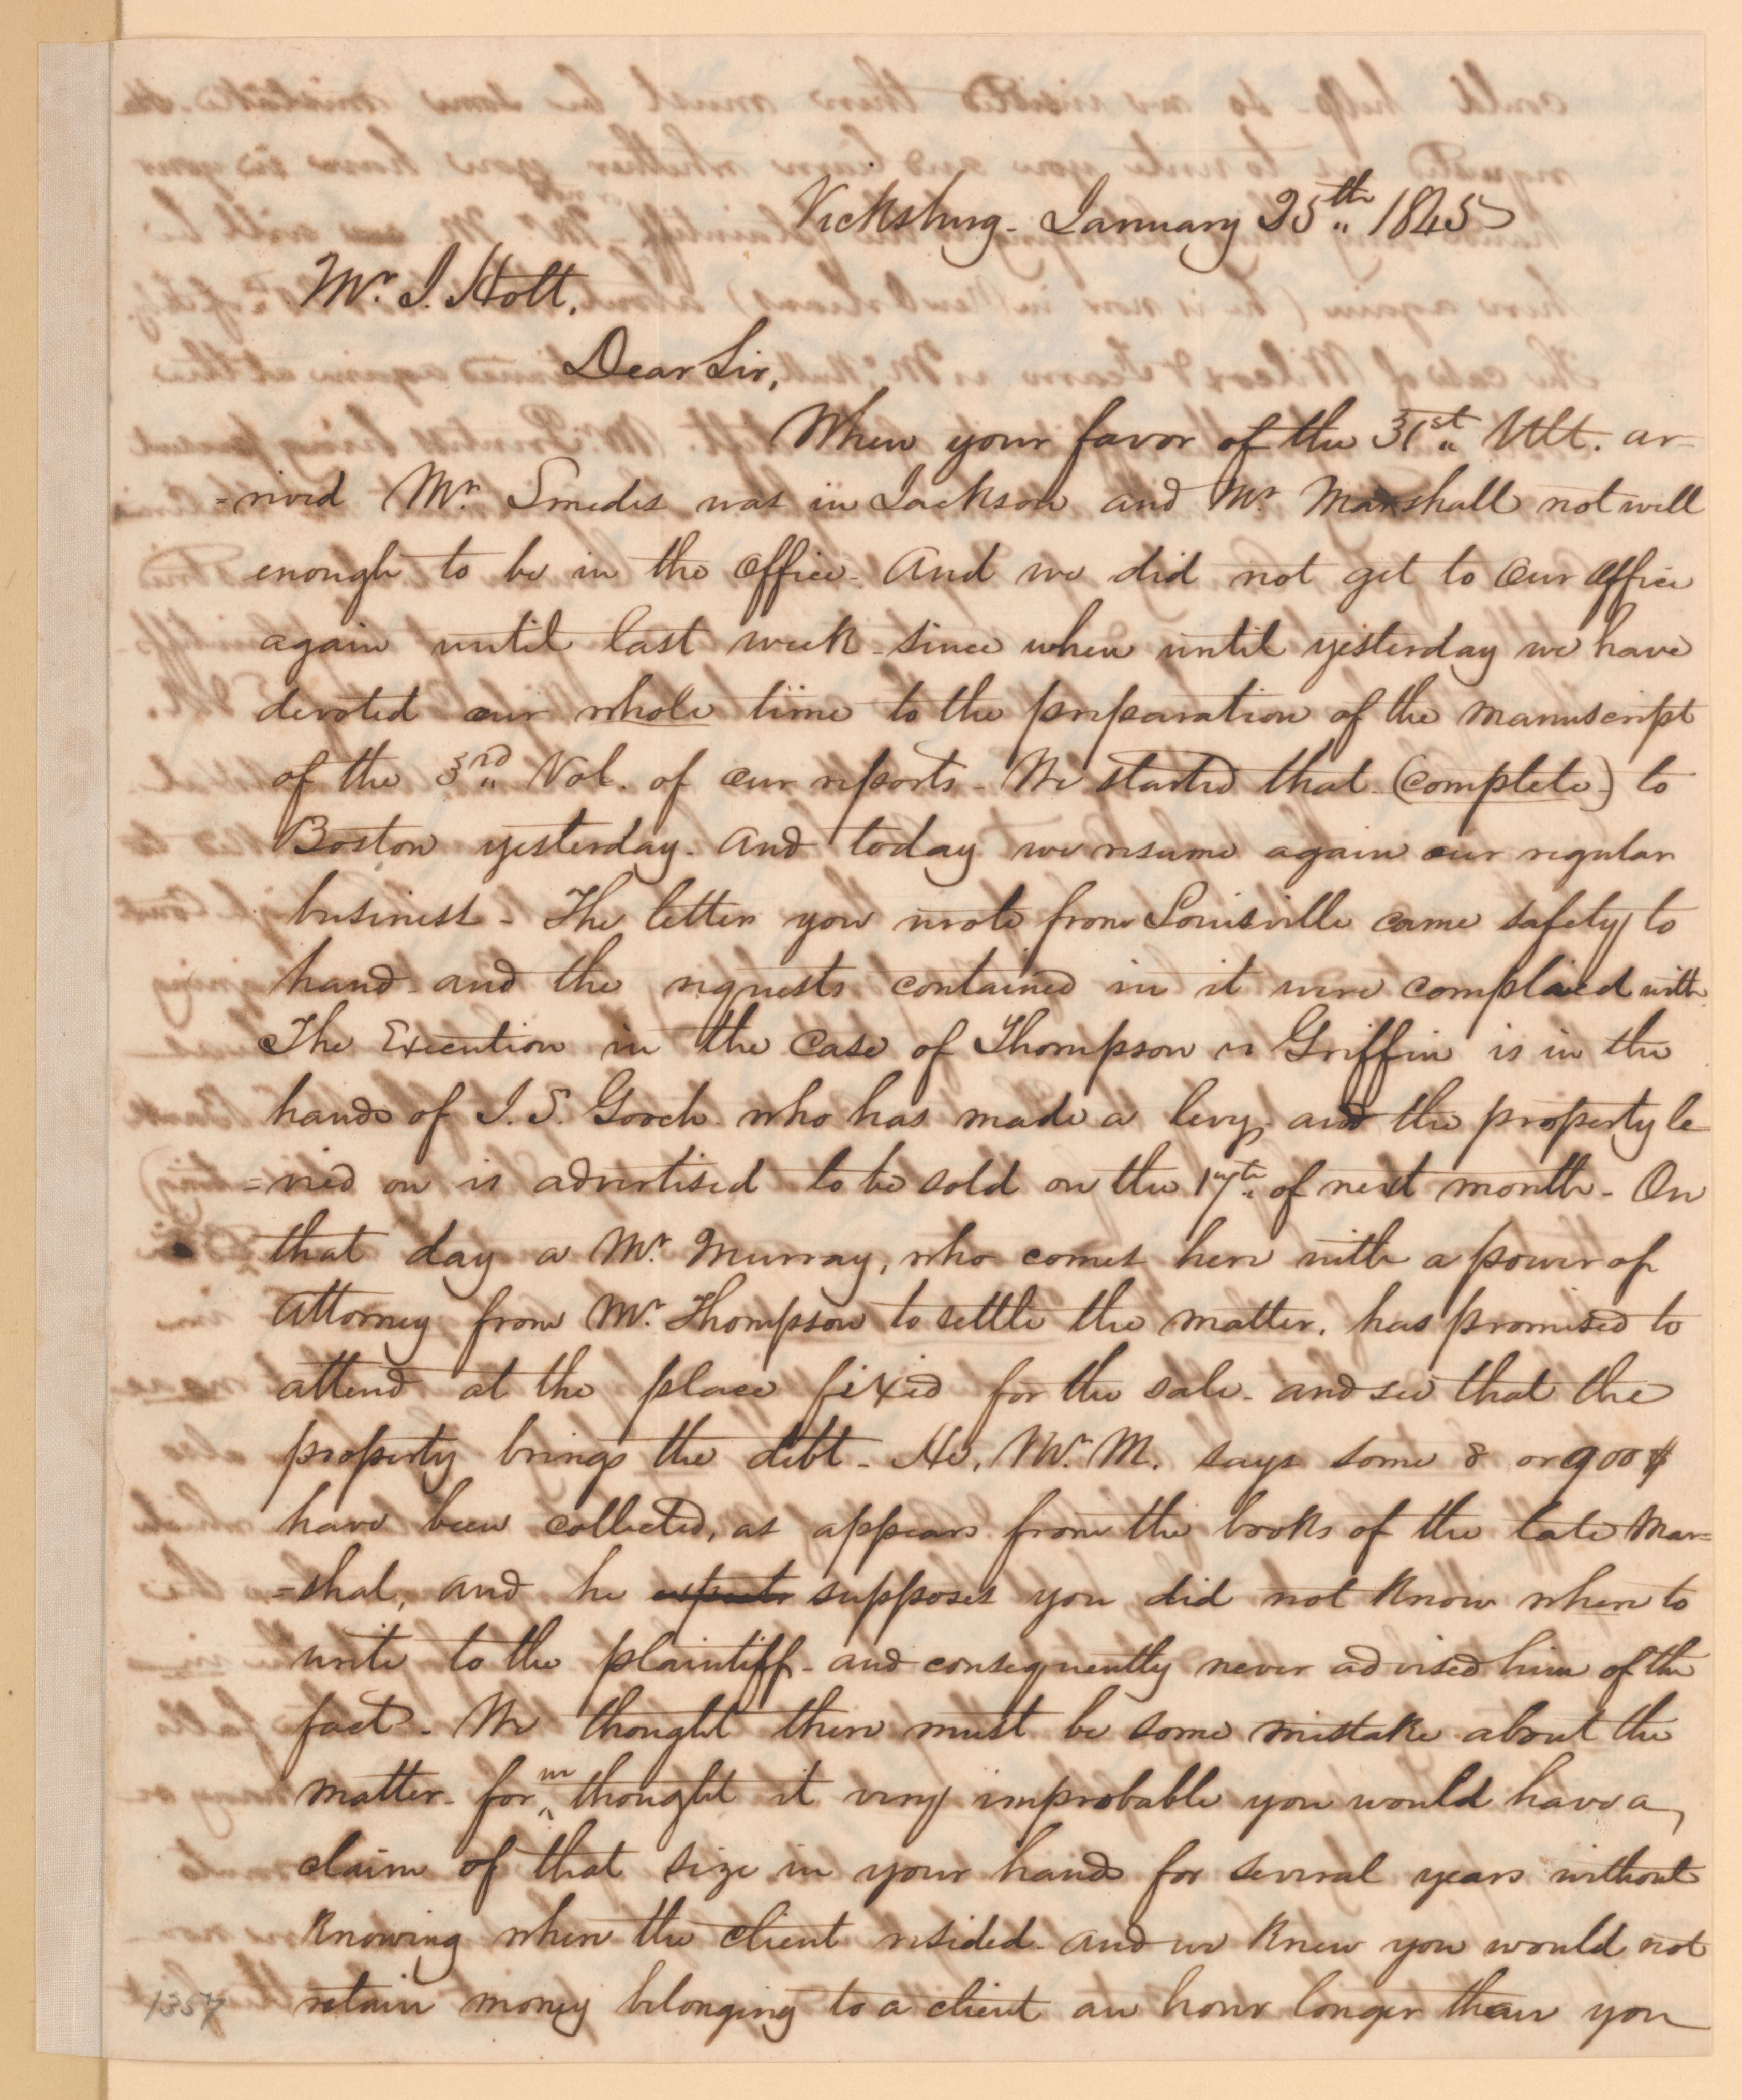 Vicksburg - January 25th 1845
Mr. J. Holt.
Dear Sir,
When your favor of the 31st Ult. ar-
=rived Mr. Smedes was in Jackson and Mr. Marshall not well
enough to be in the office. And we did not get to our office
again until last week - since when until yesterday we have
devoted our whole time to the preparation of the manuscript
of the 3rd Vol. of our reports - We started that (complete) to
Boston yesterday - and today we resume again our regular
business - The letter you wrote from Louisville came safely to
hand - and the requests contained in it were complied with.
The Execution in the Case of Thompson vs Griffin is in the
hands of J. S. Gooch who has made a levy, and the property le
=vied on is advertised to be sold on the 17th of next month - On
that day a Mr. Murray, who comes here with a power of
attorney from Mr. Thompson to settle the matter, has promised to
attend at the place fixed for the sale - and see that the
property brings the debt - He, Mr. M. says some 8 or 900$
have been collected, as appears from the books of the late Mar=
=shal, and he expects supposes you did not know where to
write to the plaintiff - and consequently never advised him of the
fact - We thought there must be some mistake about the
matter - for we thought it very improbable you would have a
claim of that size in your hands for several years without
knowing where the client resided - and we knew you would not
retain money belonging to a client an hour longer than you
1357